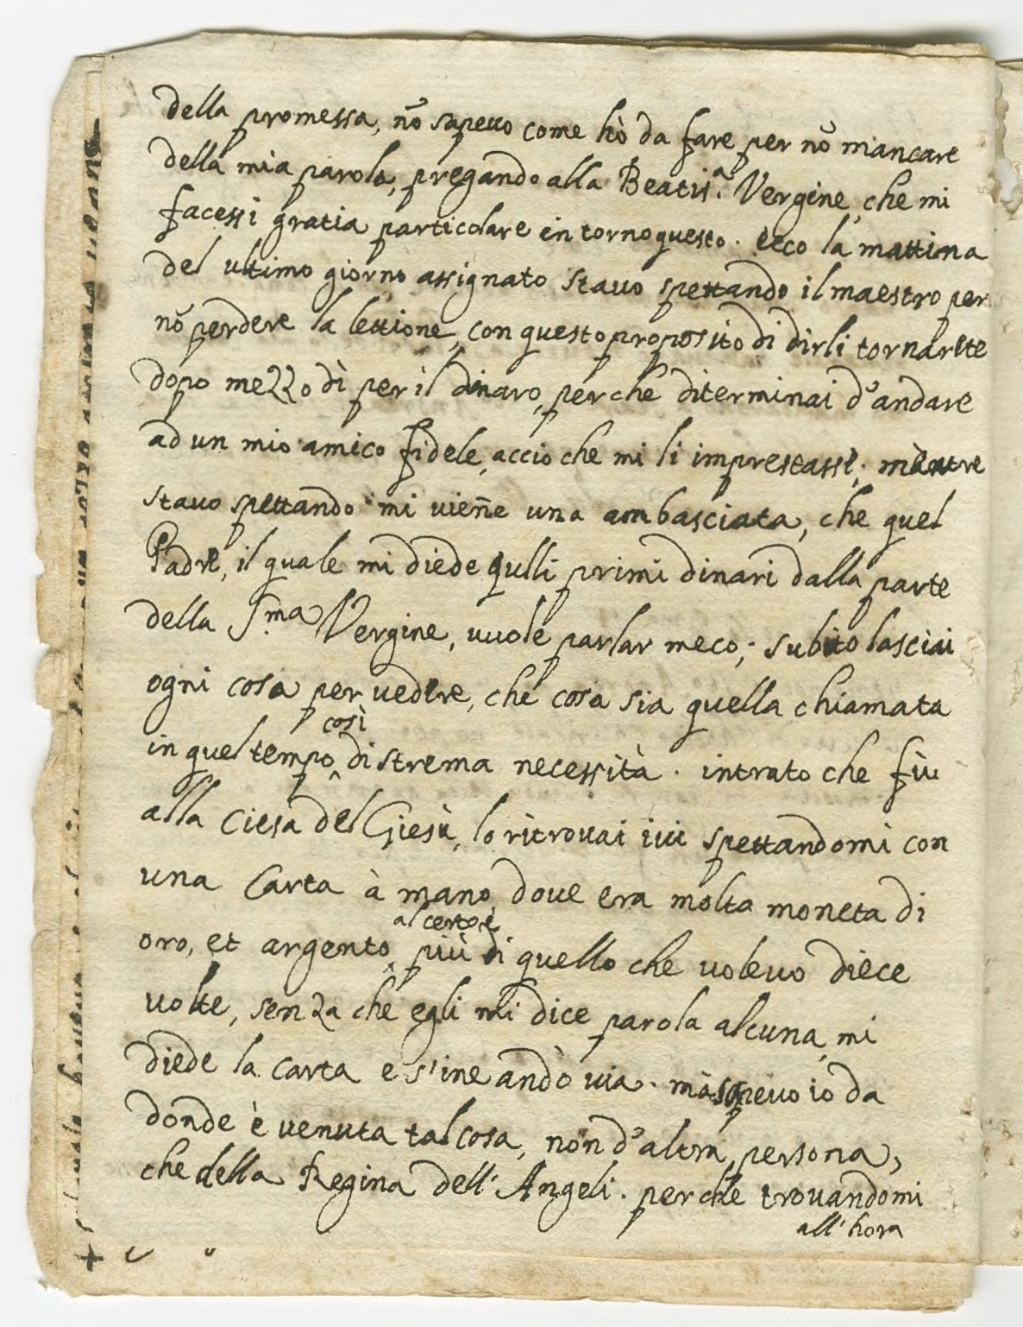 della promessa, nõ sapevo come hò da fare per nõ mancare
della mia parola, pregando alla Beatis.ª Vergine, che mi
facessi gratia particolare in torno questo. ecco la mattina
del ultimo giorno assignato stavo spettando il maestro per
nõ perdere la lettione, con questo proposito di dirli tornarete
dopo mezzo dì per il dinaro, perche diterminai d'andare
ad un mio amico fidele, accio che mi li imprestassi. mentre
stavo spettando mi vieñe una ambasciata, che quel
Padre, il quale mi diede qulli primi dinari dalla parte
della S.ma Vergine, vuole parlar meco; subito lasciai
ogni cosa per vedere, che cosa sia quella chiamata
in quel tempo così di strema necessità. intrato che fù
alla Ciesa del Giesù, lo ritrovai ivi spettandomi con
una Carta à mano, dove era molta moneta di
oro, et argento, al certo è più di quello che volevo diece
volte, senza che egli mi dice parola alcuna, mi
diede la carta e s'ine andò via. mà sapevo io da
donde è venuta tal cosa, non d'altra persona,
che della Regina dell'Angeli. perche trovandomi
all'hora